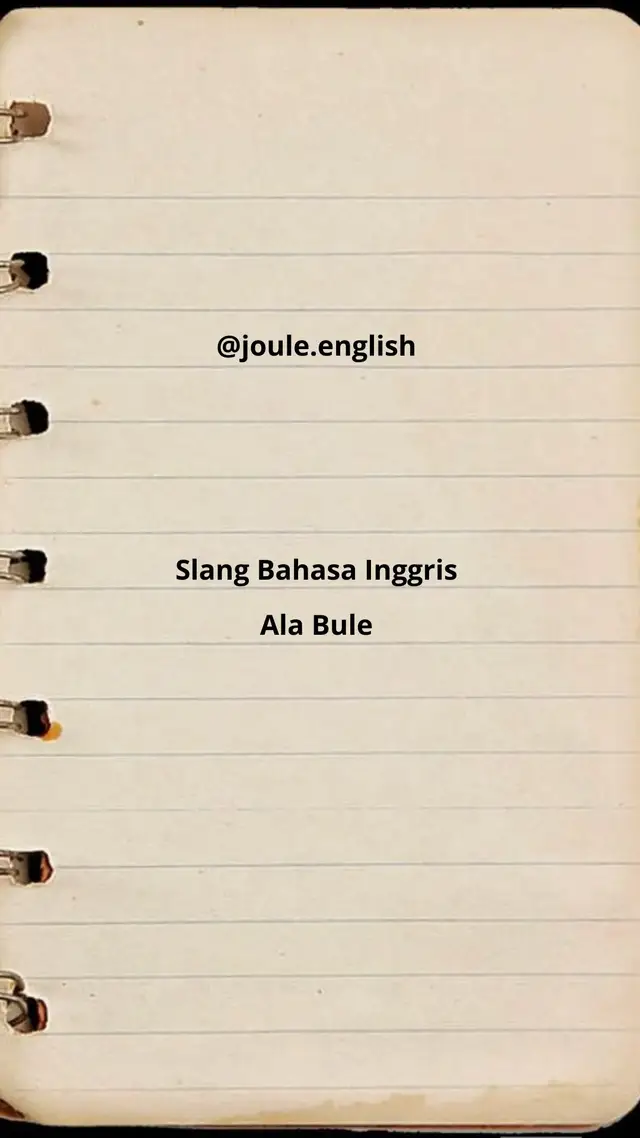 @joule.english
Slang Bahasa Inggris
Ala Bule